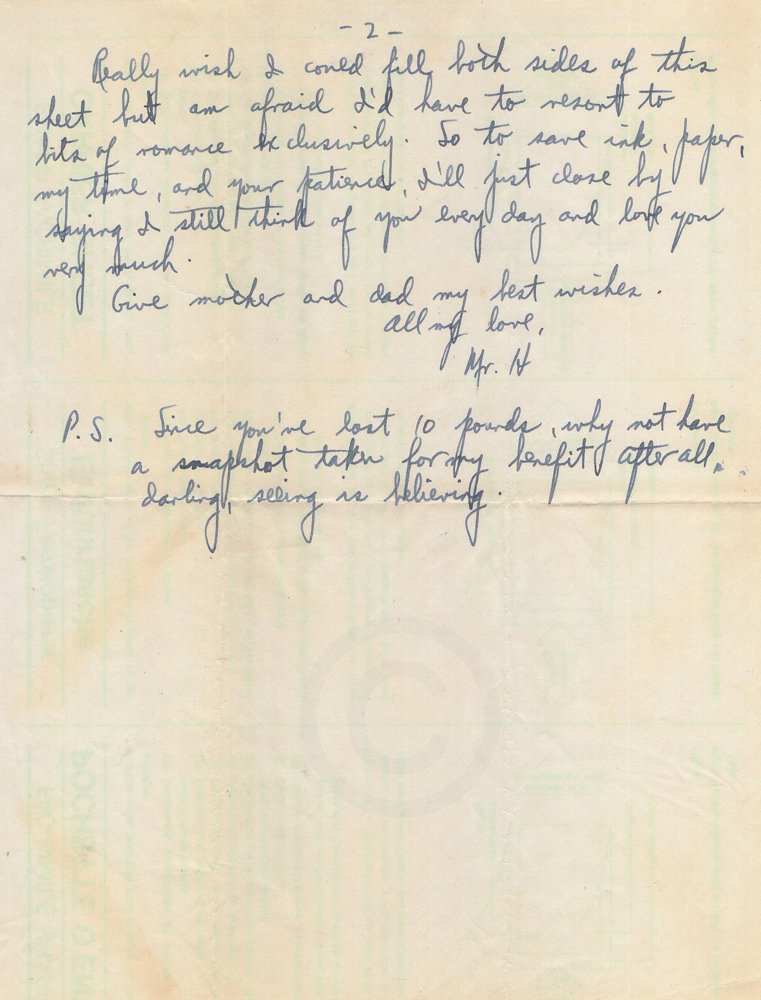 - 2 -
Really wish I could fill both sides of this
sheet but am afraid I'd have to resort to
bits of romance exclusively. So to save ink, paper,
my time, and your patience, I'll just close by
saying I still think of you every day and love you
very much.
Give mother and dad my best wishes.
All my love,
Mr. H
P.S. Since you've lost 10 pounds, why not have
a snapshot taken for my benefit after all,
darling, seeing is believing.